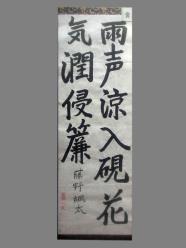 雨声涼入硯花
気潤侵簾
藤野 太